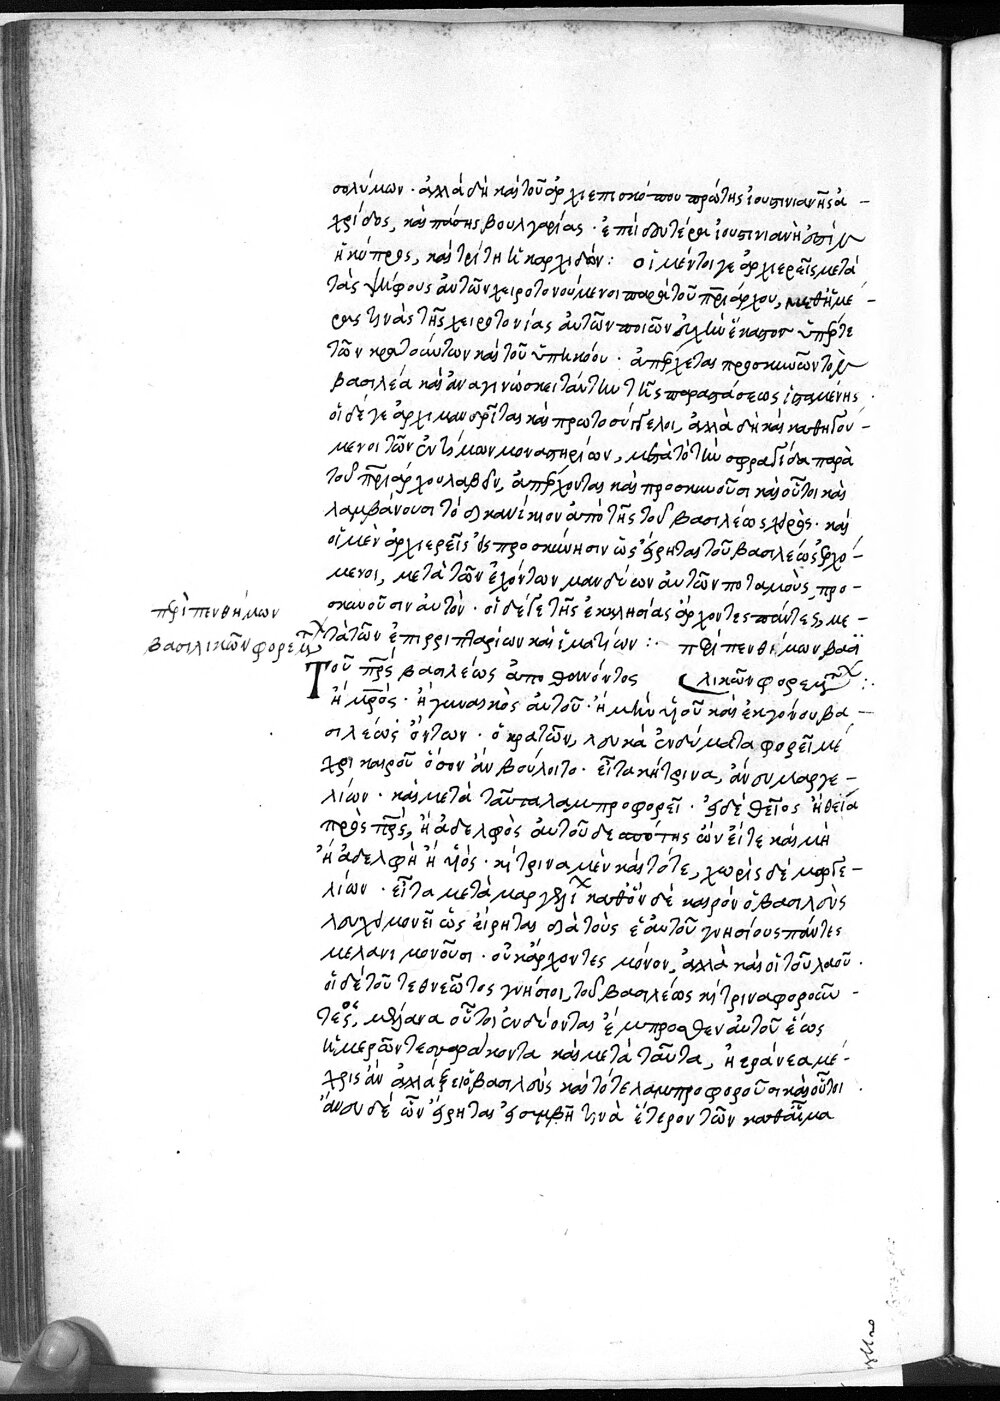 σολύμων · ἀλλὰ δὴ καὶ τοῦ ἀρχιεπισκόπου πρώτης ἰουστινιανῆς ἀ-
χρίδος, καὶ πάσης βουλγαρίας · ἐπεὶ δευτέρα ἰουστινιανὴ ἐστὶν
ἡ κύπρος, καὶ τρίτη ἡ καρχιδών : οἱ μέντοιγε ἀρχιερεῖς μετὰ
τὰς ψήφους αὐτῶν χειροτονούμενοι παρὰ τοῦ πριάρχου, μεθ' ἡμέ-
ρας τινὰς τῆς χειροτονίας αὐτῶν ποιῶν εὐχὴν ἕκαστος ὑπέρ τε
τῶν κρατούντων καὶ τοῦ ὑπηκόου · ἀπέρχεται προσκυνῶν τὸν
βασιλέα καὶ ἀναγινώσκει ταύτην τῆς παραστάσεως ἱσταμένης ·
οἱ δέ γε ἀρχιμανδρῖται καὶ πρωτοσύγκελοι, ἀλλὰ δὴ καὶ καθηγού-
μενοι τῶν ἐντίμων μοναστηρίων, μετὰ τὸ τὴν σφραγίδα παρὰ
τοῦ πριάρχου λαβεῖν, ἀπέρχονται καὶ προσκυνοῦσι καὶ οὗτοι καὶ
λαμβάνουσι τὸ δικανίκιον ἀπὸ τῆς τοῦ βασιλέως χειρὸς · καὶ
οἱ μὲν ἀρχιερεῖς εἰς προσκύνησιν ὡς εἴρηται τοῦ βασιλέως ἐρχό-
μενοι, μετὰ τῶν ἐχόντων μανδύων αὐτῶν ποταμοὺς, προ-
σκυνοῦσιν αὐτὸν · οἱ δέ γε τῆς ἐκκλησίας ἄρχοντες πάντες, με-
τὰ τῶν ἐπιρριπταρίων καὶ ἱματίων : περὶ πενθήμων βασι
περὶ πενθήμων
βασιλικῶν φορεμάτων
Τοῦ πρς βασιλέως ἀποθανόντος λικῶν φορεμάτων :
ἢ μρὸς · ἢ γυναικὸς αὐτοῦ · ἢ μὴν υἱοῦ καὶ ἐκγόνου βα-
σιλέως ὄντων · ὁ κρατῶν, λευκὰ ἐνδύματα φορεῖ μέ
χρι καιροῦ ὅσον ἂν βούλοιτο · εἶτα κήτρινα, ἄνευ μαργε-
λίων · καὶ μετὰ ταῦτα λαμπροφορεῖ · εἰ δὲ θεῖος ἢ θεία
πρὸς πρς, ἢ ἀδελφὸς αὐτοῦ δεσπότης ὢν εἴτε καὶ μὴ
ἢ ἀδελφὴ ἢ υἱὸς · κήτρινα μὲν καὶ τότε, χωρὶς δὲ μαργε-
λίων · εἶτα μετὰ μαργελλίων καθ' ὃν δὲ καιρὸν ὁ βασιλεὺς
λευχημονεῖ ὡς εἴρηται διὰ τοὺς ἑαυτοῦ γνησίους πάντες
μελανημονοῦσι · οὐκ ἄρχοντες μόνον, ἀλλὰ καὶ οἱ τοῦ λαοῦ ·
οἱ δὲ τοῦ τεθνεῶτος γνήσιοι, τοῦ βασιλέως κήτρινα φοροῦν-
τος, μέλανα οὗτοι ἐνδύονται ἔμπροσθεν αὐτοῦ ἕως
ἡμερῶν τεσσαράκοντα καὶ μετὰ ταῦτα, ἠεράνεα μέ-
χρις ἂν ἀλλάξει ὁ βασιλεὺς καὶ τότε λαμπροφοροῦσι καὶ οὗτοι ·
ἄνευ δὲ ὧν εἴρηται εἰ συμβῆ τινὰ ἕτερον τῶν καθ' αἷμα